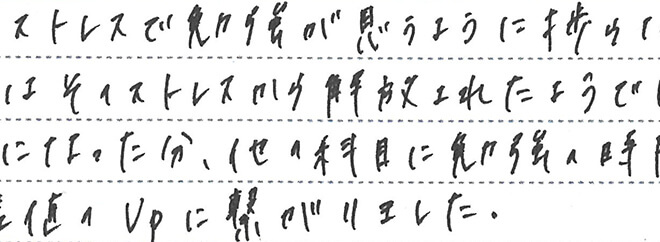 ストレスで勉強が思うように捗らな
はそのストレスから解放されたようで
になった分、他の科目に勉強の時
差値のUpに繋がりました。